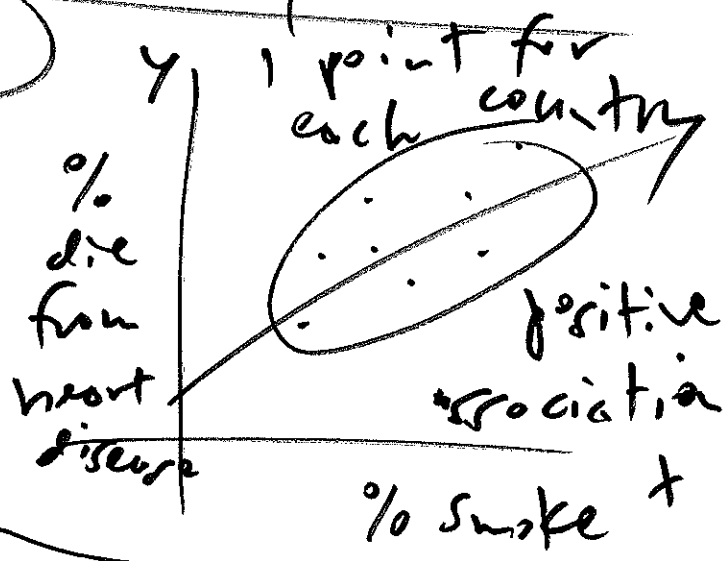 y 1 point for
each country
%
die
from
heart
disease
positive
association
% smoke